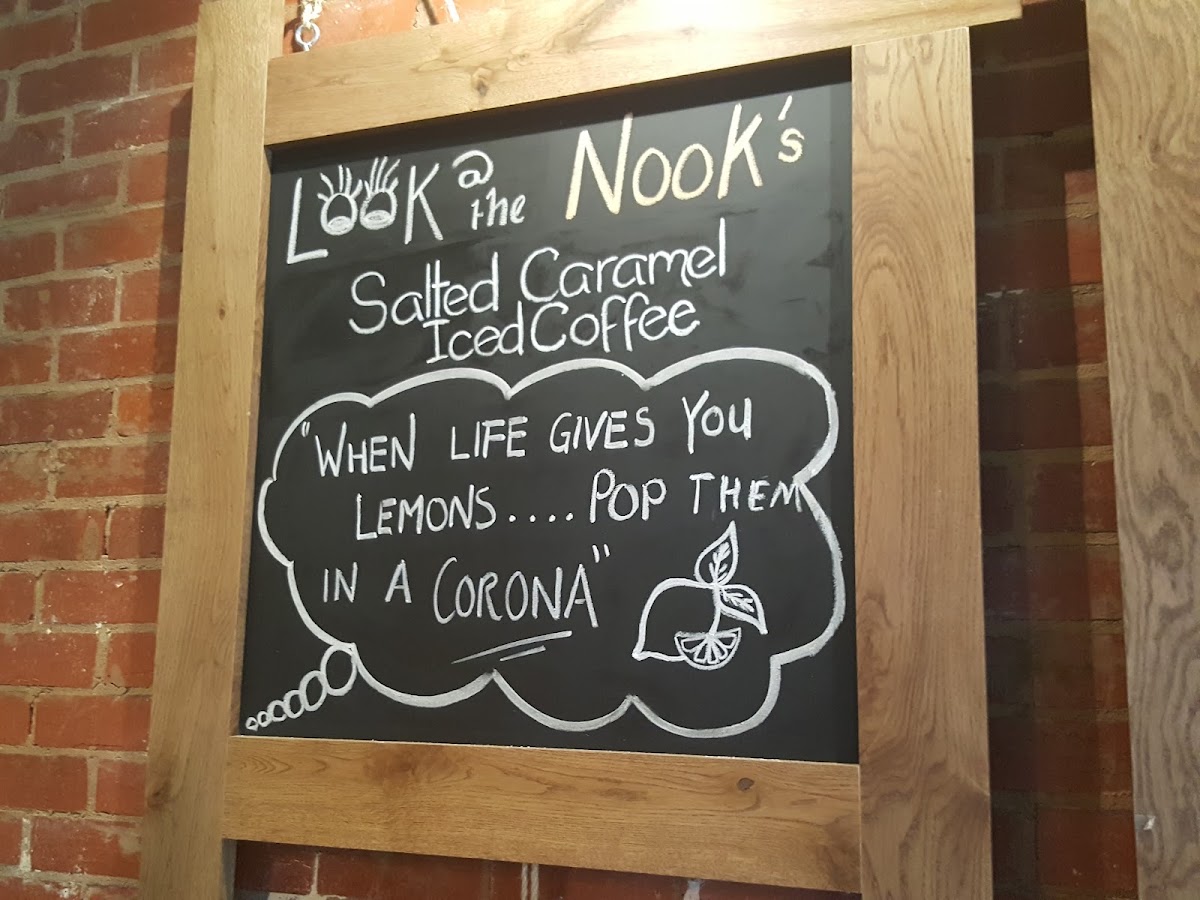 LOOK @ the NOOK's
Salted Caramel
Iced Coffee
"WHEN LIFE GIVES YOU
LEMONS.... POP THEM
IN A CORONA"